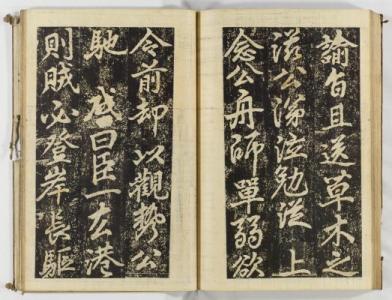 諭旨且送草木之
滋公涕泣勉從上
念公舟師單弱欲
令前却以觀勢公
馳啓曰臣一左港
則賊必登岸長驅